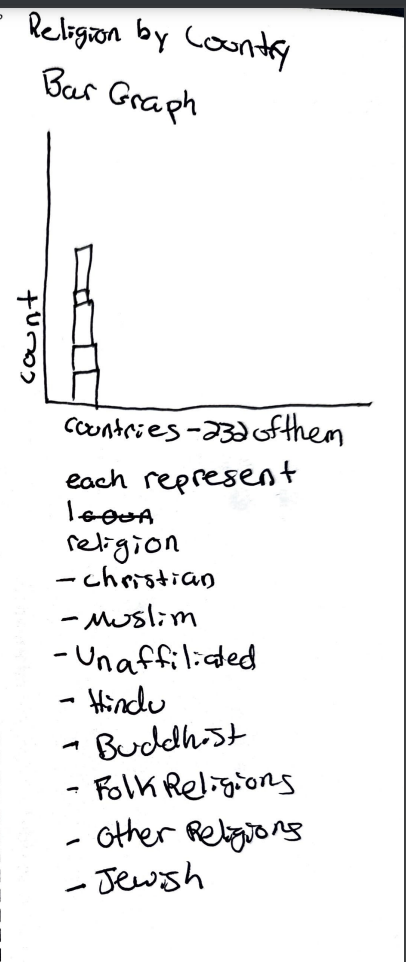 Religion by Country
Bar Graph
count
countries - 232 of them
each represent
1 coun
religion
- christian
- Muslim
- Unaffiliated
- Hindu
- Buddhist
- Folk Religions
- other Religions
- Jewish